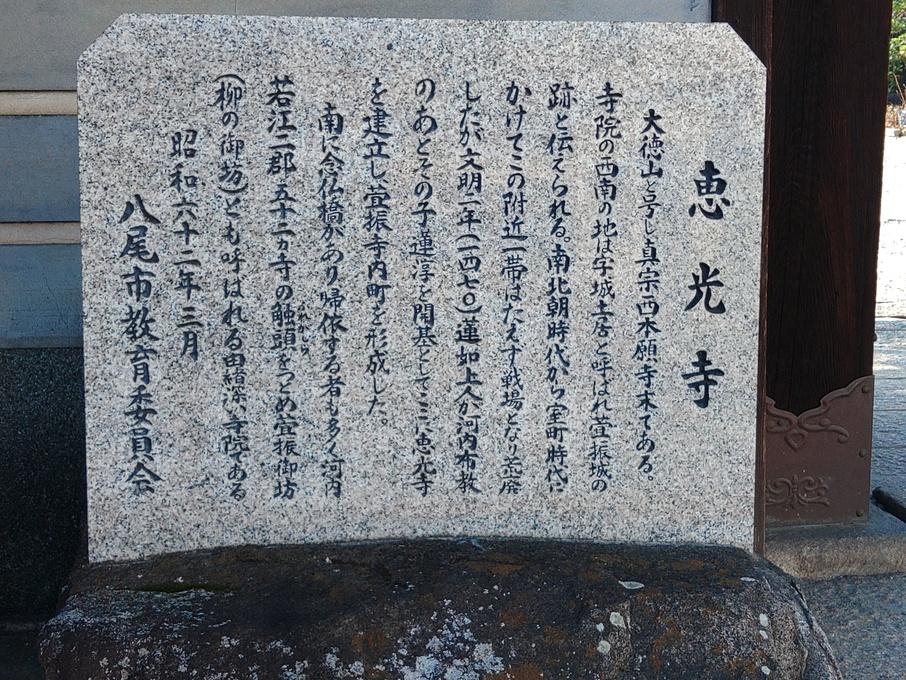 恵光寺
大徳山と号し真宗西本願寺末である。
寺院の西南の地は字城土居と呼ばれ萱振城の
跡と伝えられる。南北朝時代から室町時代に
かけてこの附近一帯はたえず戦場となり荒廃
したが文明二年(一四七〇)蓮如上人が河内布教
のあとその子蓮淳を開基としてここに恵光寺
を建立し萱振寺内町を形成した。
南に念仏橋があり帰依する者も多く河内
若江二郡五十二ヵ寺の触頭をつとめ萱振御坊
(柳の御坊)とも呼ばれる由緒深い寺院である
昭和六十二年三月
八尾市教育委員会